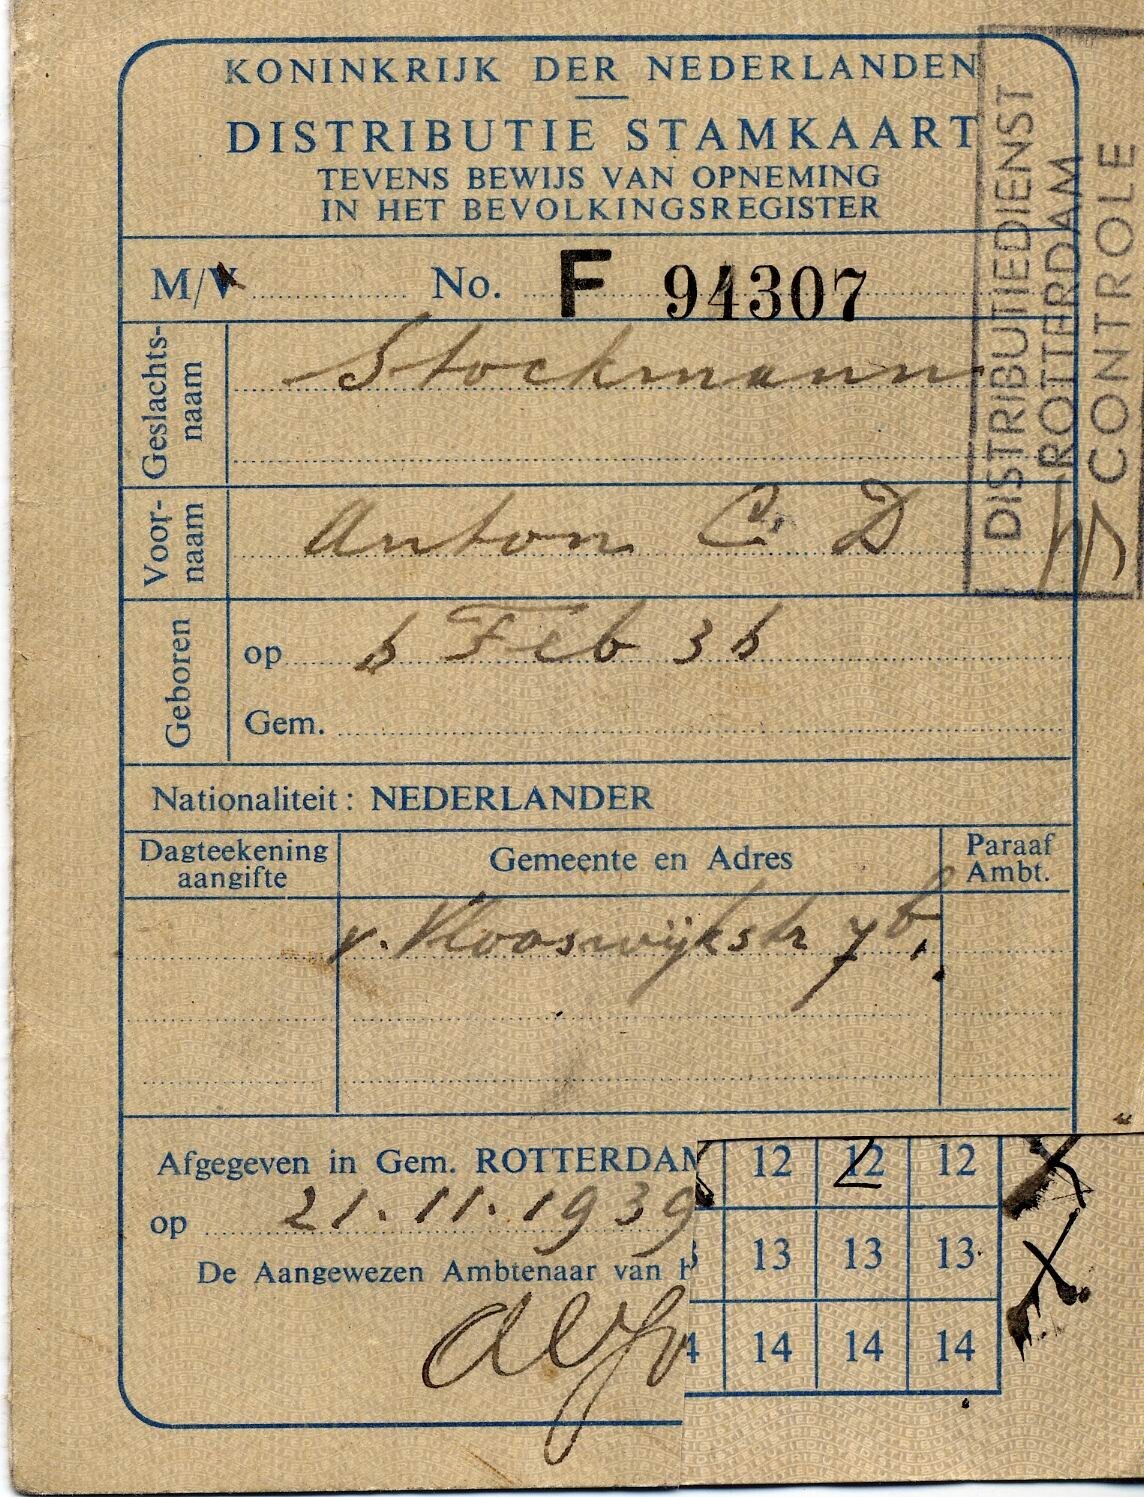 KONINKRIJK DER NEDERLANDEN
DISTRIBUTIE STAMKAART
TEVENS BEWIJS VAN OPNEMING
IN HET BEVOLKINGSREGISTER
M/V No. F 94307
Geslachts-
naam
Stockmann
Voor-
naam
Anton C. D
Geboren
op 6 Feb 36
Gem.
Nationaliteit: NEDERLANDER
Dagteekening
aangifte
Gemeente en Adres
Paraaf
Ambt.
v. Vlooswijkstr 7b.
Afgegeven in Gem. ROTTERDAM
op 21.11.1939
De Aangewezen Ambtenaar van
12 12 12
3 13 13 13
4 14 14 14
DISTRIBUTIEDIENST
ROTTERDAM
CONTROLE